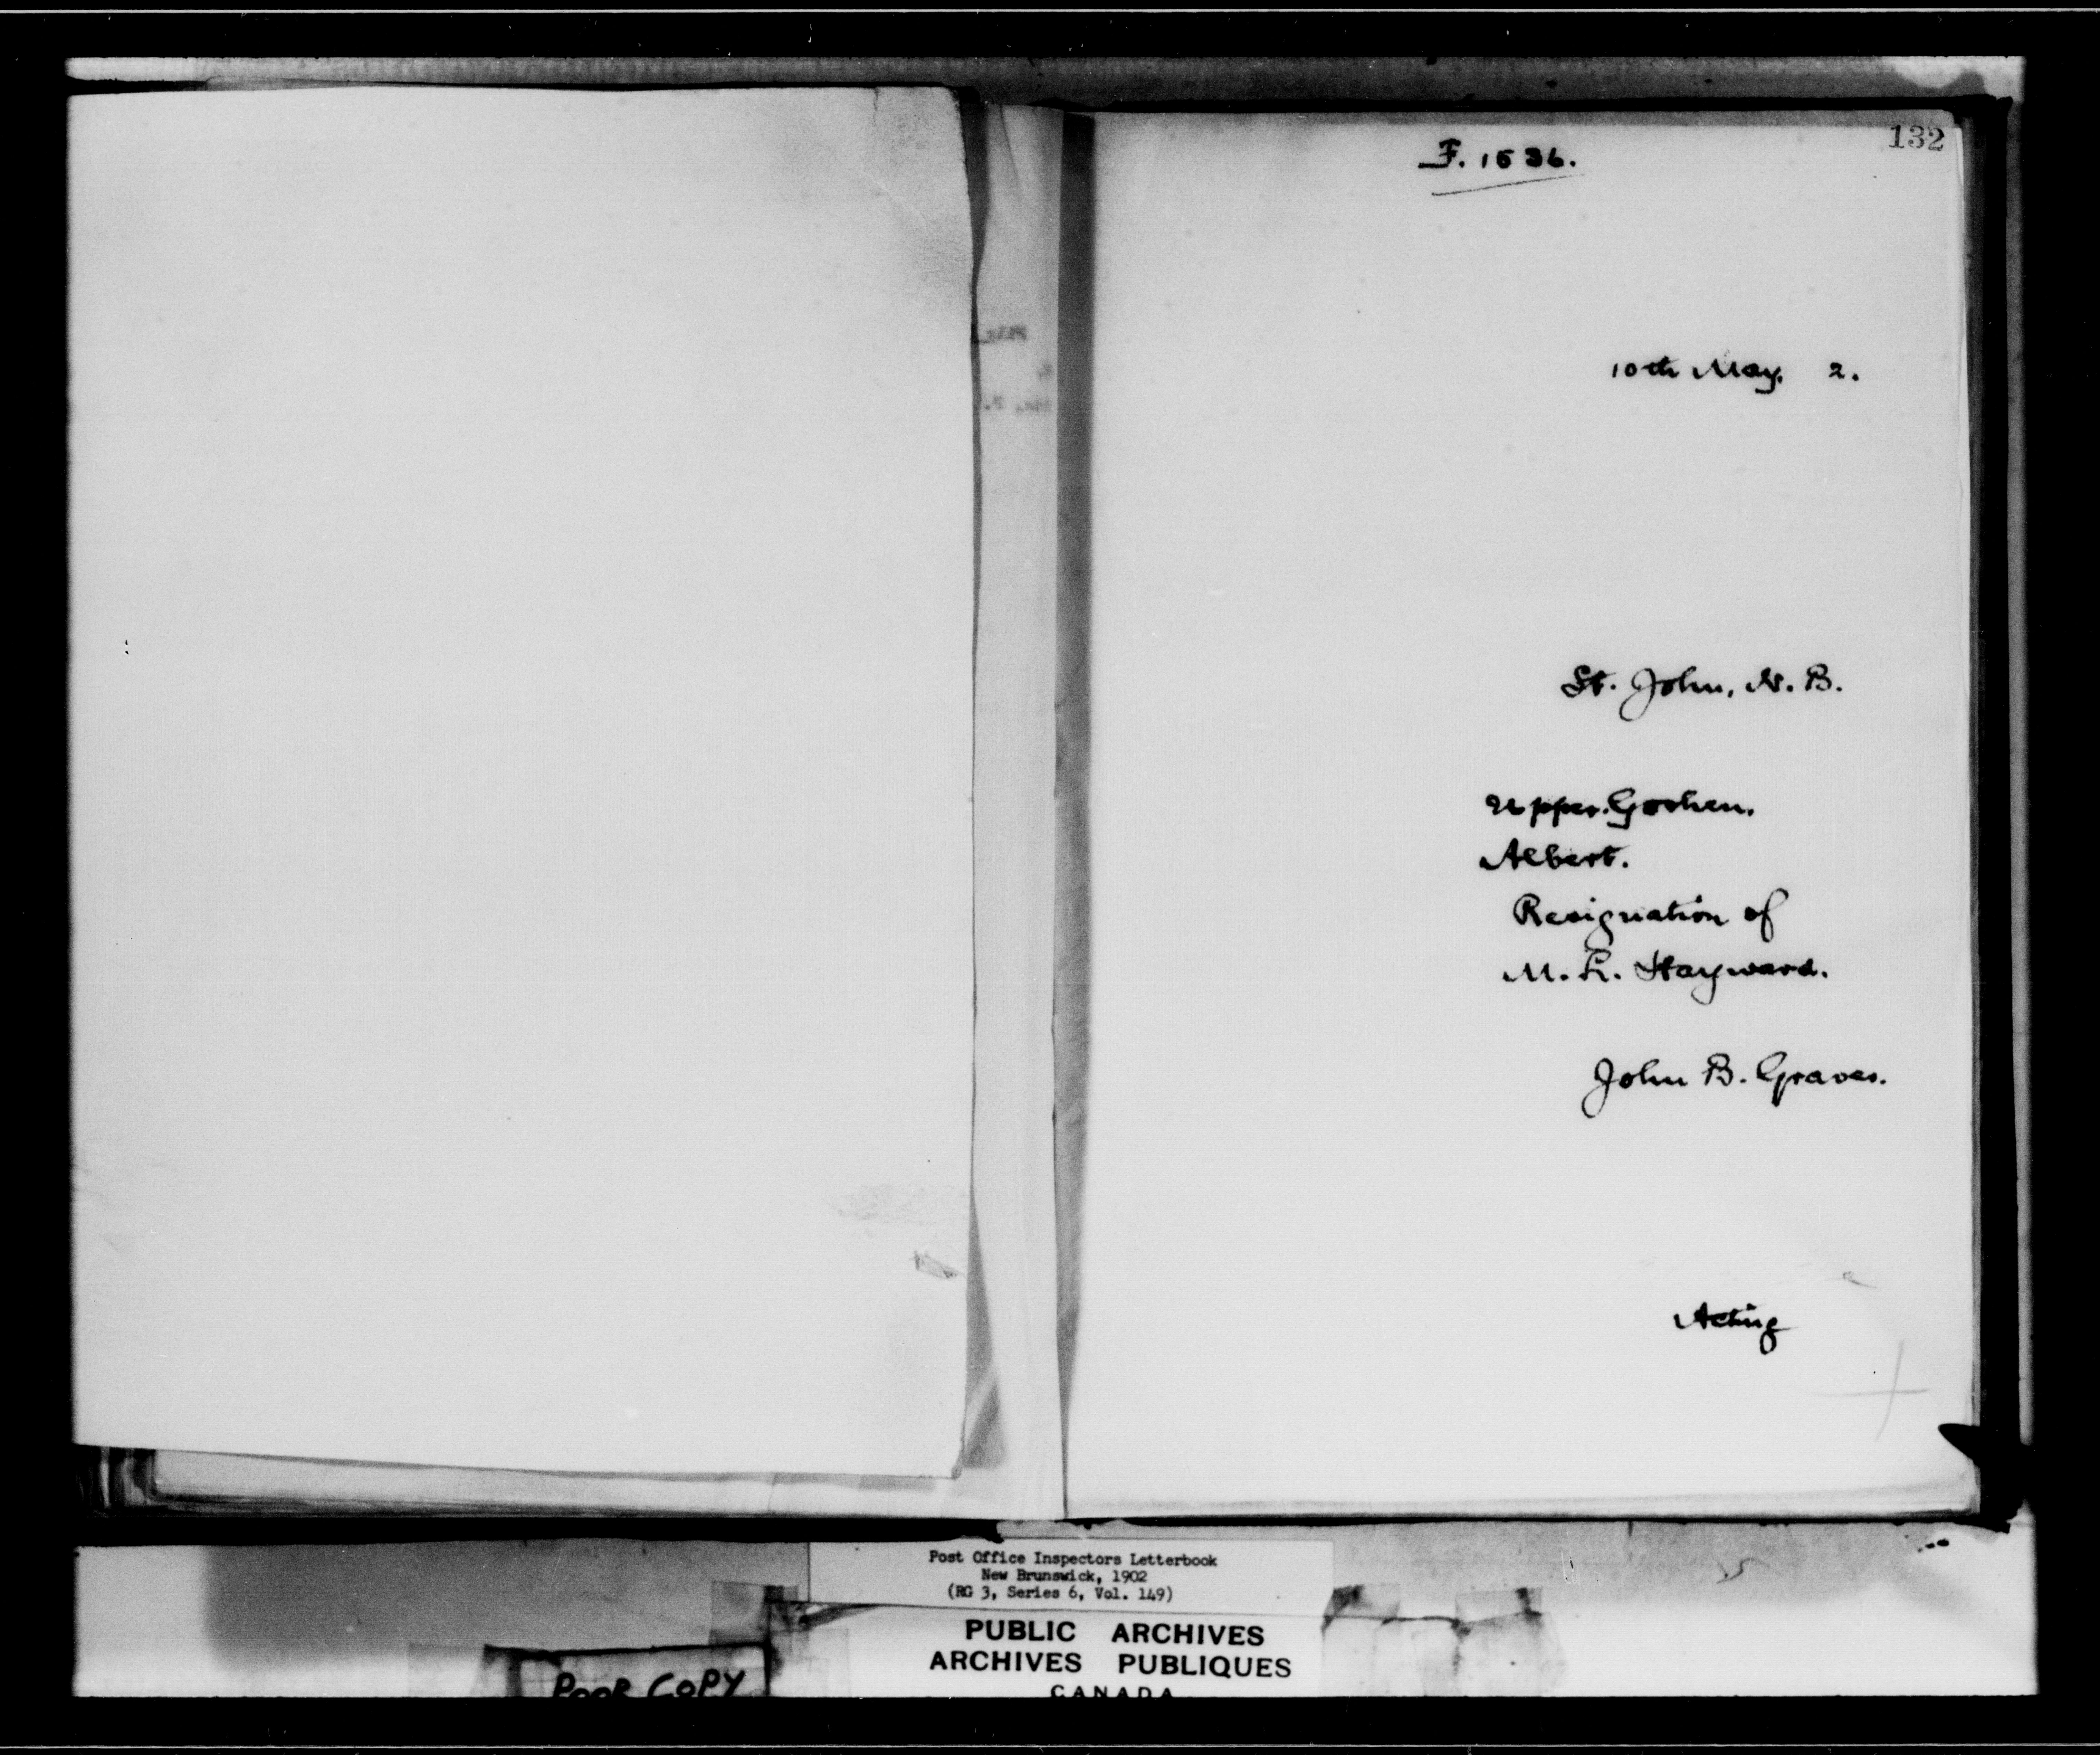 132
F. 1536.
10th May. 2.
St. John, N. B.
Upper Goshen.
Albert.
Resignation of
M. L. Hayward.
John B. Graves.
Acting
Post Office Inspectors Letterbook
New Brunswick, 1902
(RG 3, Series 6, Vol. 149)
PUBLIC ARCHIVES
ARCHIVES PUBLIQUES
CANADA
POOR COPY